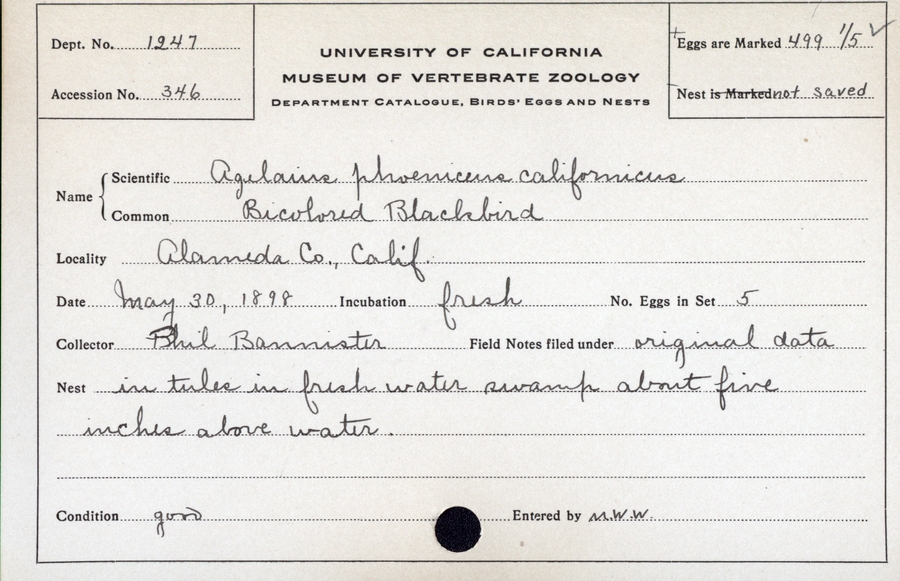 Dept. No. 1247
Accession No. 346
UNIVERSITY OF CALIFORNIA
MUSEUM OF VERTEBRATE ZOOLOGY
DEPARTMENT CATALOGUE, BIRDS' EGGS AND NESTS
Eggs are Marked 499 1/5 ✓
Nest is Marked not saved
Name
Scientific Agelaius phoeniceus californicus
Common Bicolored Blackbird
Locality Alameda Co., Calif.
Date May 30, 1898 Incubation fresh No. Eggs in Set 5
Collector Phil Bannister Field Notes filed under original data
Nest in tules in fresh water swamp about five
inches above water.
Condition good Entered by M.W.W.